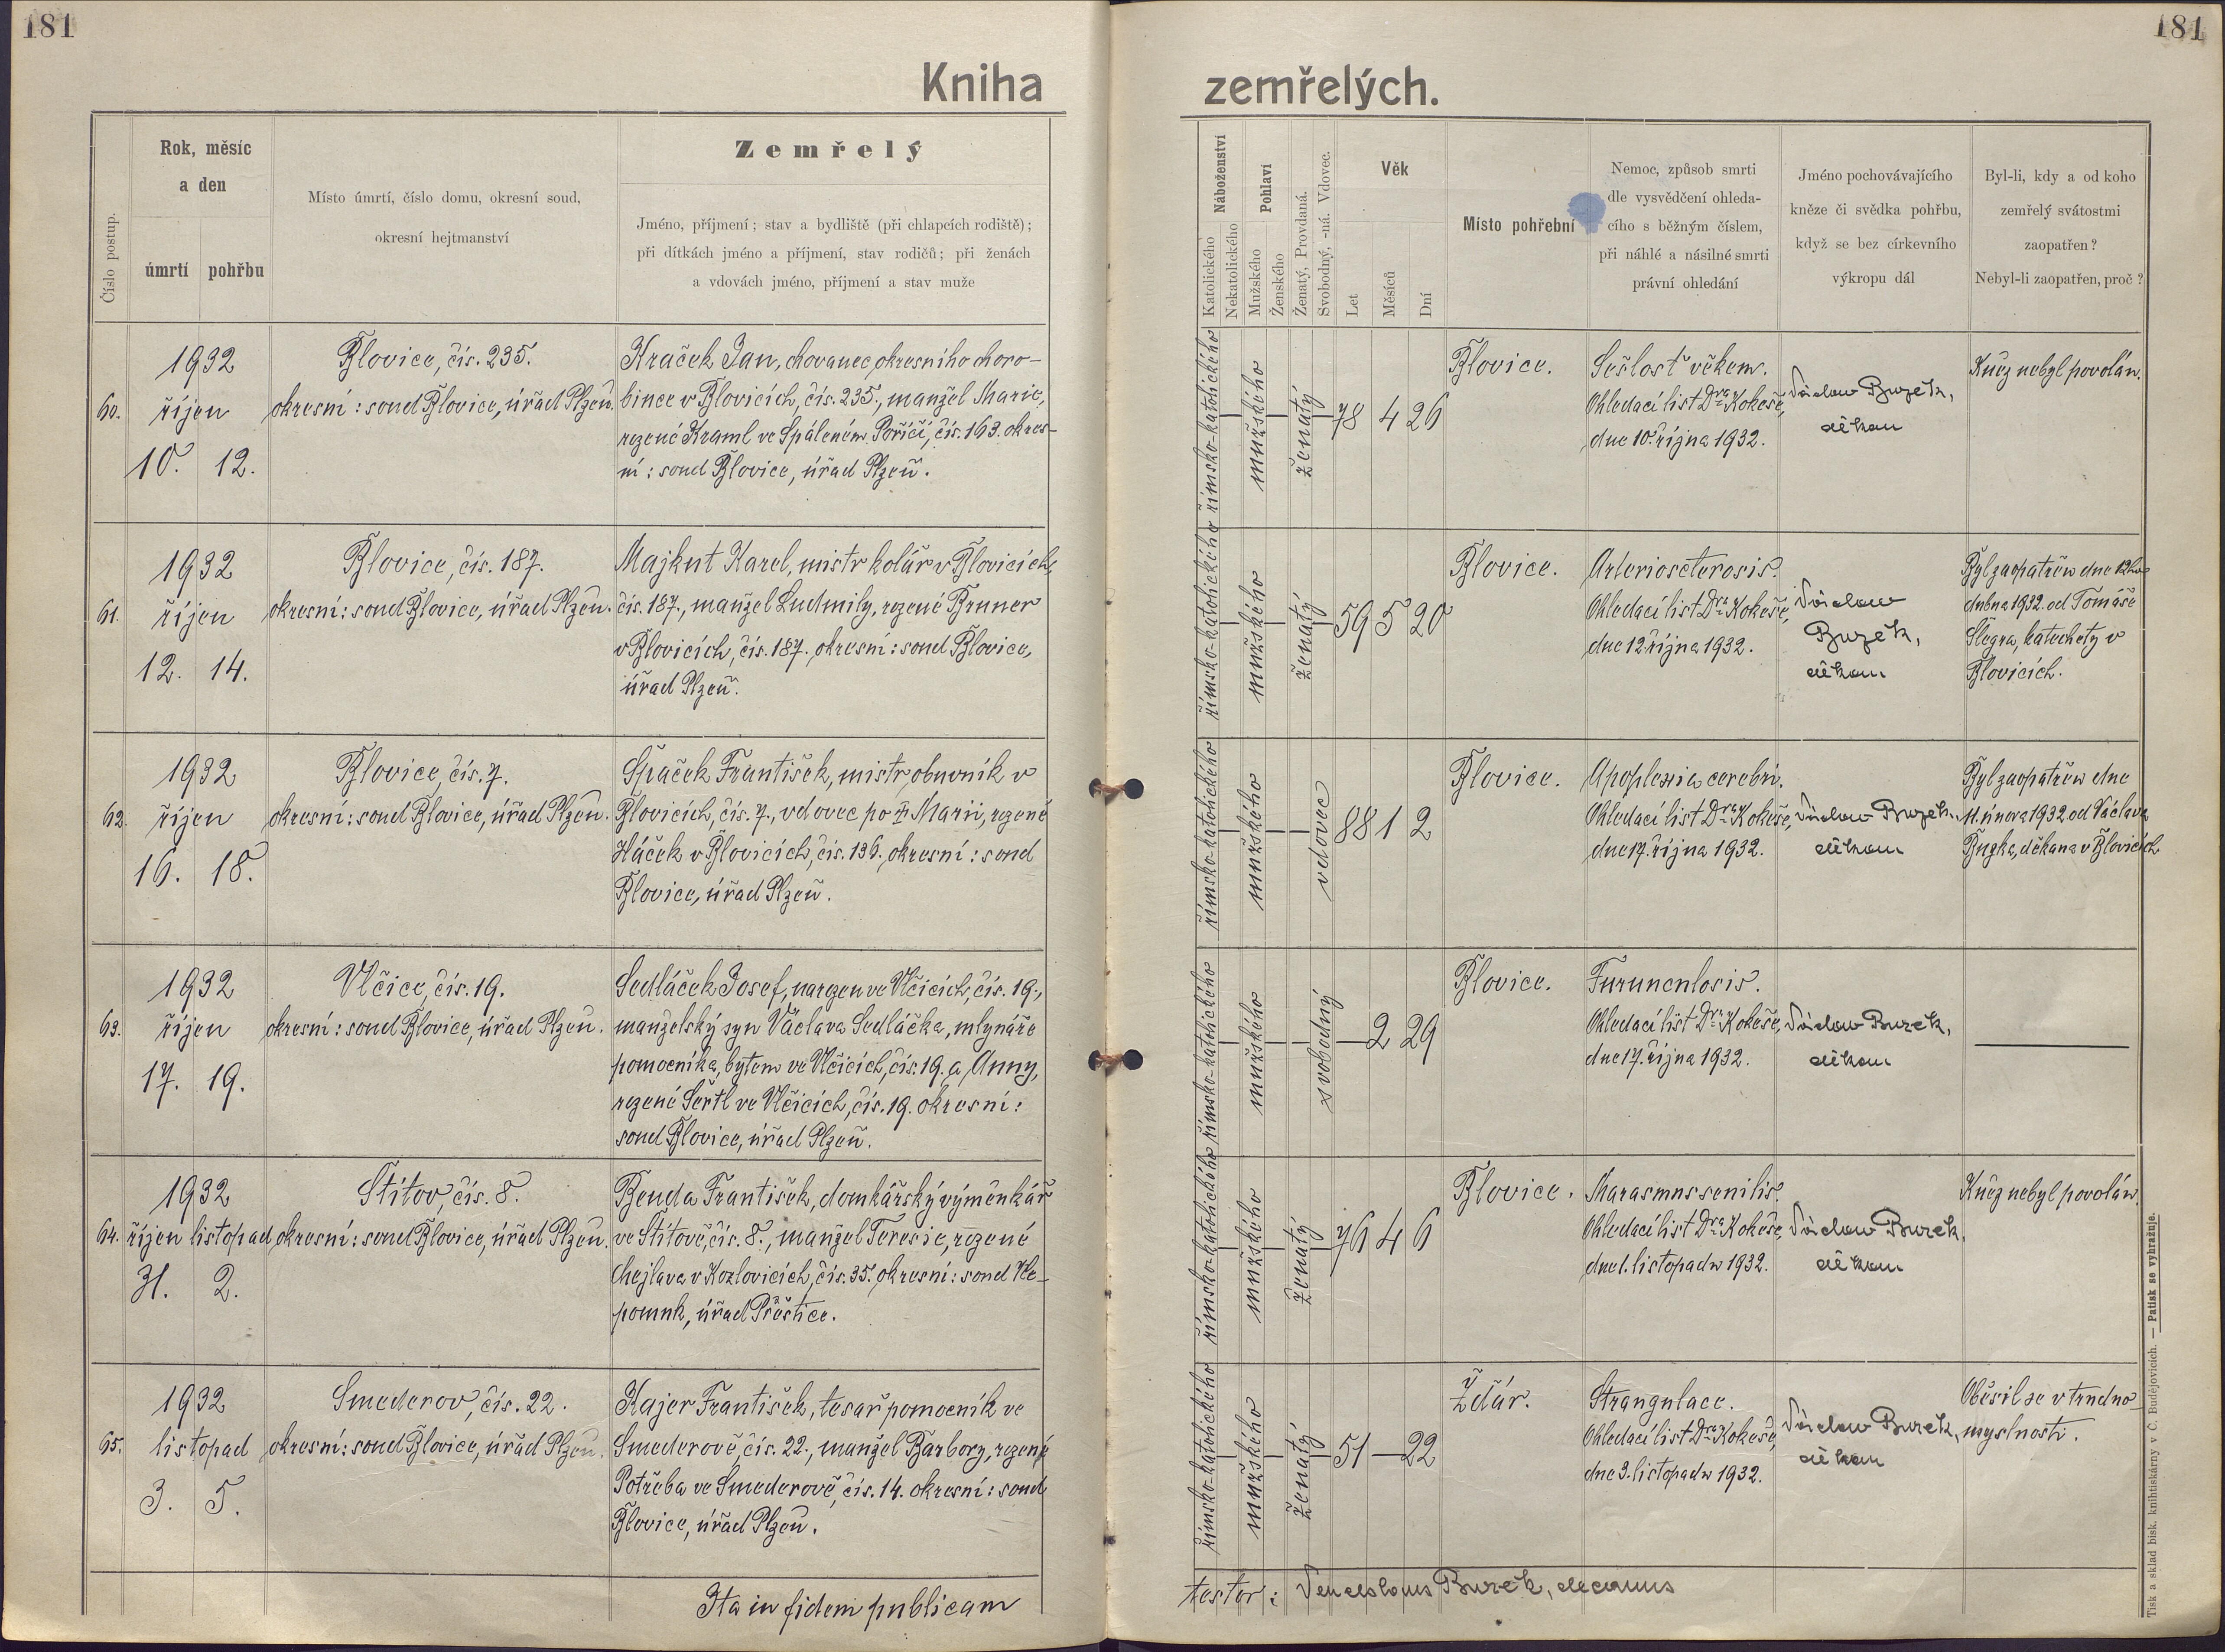 181
181
Kniha
zemřelých.
Číslo postup.
Rok, měsíc
a den
úmrtí
pohřbu
Místo úmrtí, číslo domu, okresní soud,
okresní hejtmanství
Zemřelý
Jméno, příjmení; stav a bydliště (při chlapcích rodiště);
při dítkách jméno a příjmení, stav rodičů; při ženách
a vdovách jméno, příjmení a stav muže
Náboženství
Katolického
Nekatolického
Pohlaví
Mužského
Ženského
Ženatý, Provdaná.
Svobodný, -ná. Vdovec.
Věk
Let
Měsíců
Dní
Místo pohřební
Nemoc, způsob smrti
dle vysvědčení ohleda-
cího s běžným číslem,
při náhlé a násilné smrti
právní ohledání
Jméno pochovávajícího
kněze či svědka pohřbu,
když se bez církevního
výkropu dál
Byl-li, kdy a od koho
zemřelý svátostmi
zaopatřen?
Nebyl-li zaopatřen, proč?
60.
1932
říjen
10. 12.
Blovice, čís. 235.
okresní: soud Blovice, úřad Plzeň.
Kraček Jan, chovanec okresního choro-
bince v Blovicích, čís. 235., manžel Marie,
rozené Kraml ve Spáleném Poříčí, čís. 163. okres-
ní: soud Blovice, úřad Plzeň.
římsko-katolického
mužského
ženatý
78 4 26
Blovice.
Sešlosť věkem.
Ohledací list Dra Kokeše,
dne 10. října 1932.
Václav Buzek,
děkan
Kněz nebyl povolán.
61.
1932
říjen
12. 14.
Blovice, čís. 187.
okresní: soud Blovice, úřad Plzeň.
Majkut Karel, mistr kolář v Blovicích,
čís. 187., manžel Ludmily, rozené Bruner
v Blovicích, čís. 187. okresní: soud Blovice,
úřad Plzeň.
římsko-katolického
mužského
ženatý
59 5 20
Blovice.
Arteriosclerosis.
Ohledací list Dra Kokeše,
dne 12. října 1932.
Václav
Buzek,
děkan
Byl zaopatřen dne 12ho
dubna 1932. od Tomáše
Šlegra, katechety v
Blovicích.
62.
1932
říjen
16. 18.
Blovice, čís. 7.
okresní: soud Blovice, úřad Plzeň.
Špaček František, mistr obuvník v
Blovicích, čís. 7., vdovec po † Marii, rozené
Háček v Blovicích, čís. 136. okresní: soud
Blovice, úřad Plzeň.
římsko-katolického
mužského
vdovec
88 1 2
Blovice.
Apoplexia cerebri.
Ohledací list Dra Kokeše,
dne 17. října 1932.
Václav Buzek,
děkan
Byl zaopatřen dne
11. února 1932. od Václava
Buzka, děkana v Blovicích
63.
1932
říjen
17. 19.
Vlčice, čís. 19.
okresní: soud Blovice, úřad Plzeň.
Sedláček Josef, narozen ve Vlčicích, čís. 19.,
manželský syn Václava Sedláčka, mlynáře
pomocníka, bytem ve Vlčicích, čís. 19. a Anny,
rozené Šertl ve Vlčicích, čís. 19. okresní:
soud Blovice, úřad Plzeň.
římsko-katolického
mužského
svobodný
— 2 29
Blovice.
Furunculosis.
Ohledací list Dra Kokeše,
dne 17. října 1932.
Václav Buzek,
děkan
64.
1932
říjen listopad
31. 2.
Štítov, čís. 8.
okresní: soud Blovice, úřad Plzeň.
Benda František, domkářský výměnkář
ve Štítově, čís. 8., manžel Teresie, rozené
Chejlava v Kozlovicích, čís. 35. okresní: soud Ne-
pomuk, úřad Přeštice.
římsko-katolického
mužského
ženatý
76 4 6
Blovice.
Marasmus senilis.
Ohledací list Dra Kokeše,
dne 1. listopadu 1932.
Václav Buzek,
děkan
Kněz nebyl povolán.
65.
1932
listopad
3. 5.
Smederov, čís. 22.
okresní: soud Blovice, úřad Plzeň.
Kajer František, tesař pomocník ve
Smederově, čís. 22., manžel Barbory, rozené
Potřeba ve Smederově, čís. 14. okresní: soud
Blovice, úřad Plzeň.
římsko-katolického
mužského
ženatý
51 — 22
Ždár.
Strangulace.
Ohledací list Dra Kokeše,
dne 3. listopadu 1932.
Václav Buzek,
děkan
Oběsil se v trudno-
myslnosti.
Ita in fidem publicam
testor: Venceslaus Buzek, decanus
Tisk a sklad bisk. knihtiskárny v Č. Budějovicích. — Patisk se vyhražuje.